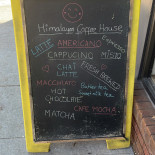 Himalaya Coffee House
LATTE AMERICANO espresso
CAPPUCINO MISTO
CHAI FRESH BREWED
LATTE
MACCHIATO
HOT
CHOCOLATE
CAFE MOCHA
MATCHA